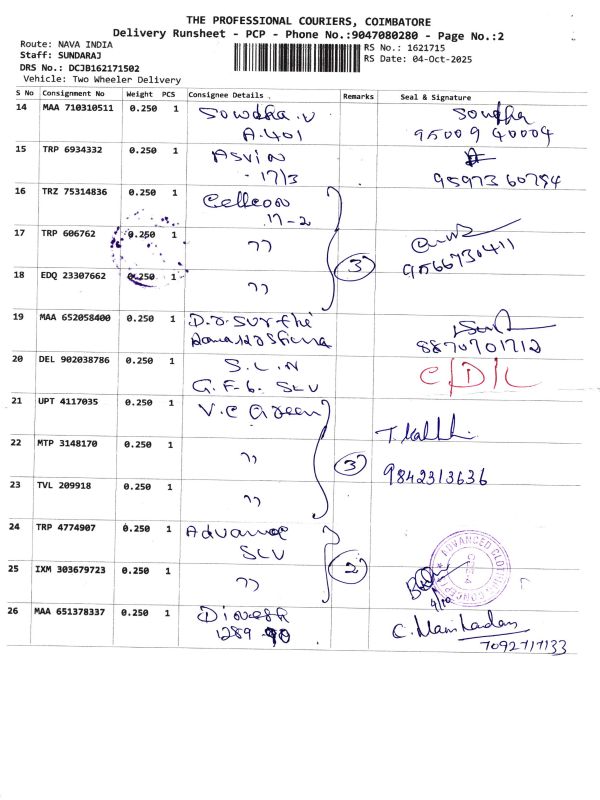 THE PROFESSIONAL COURIERS, COIMBATORE
Delivery Runsheet - PCP - Phone No.:9047080280 - Page No.:2
Route: NAVA INDIA
Staff: SUNDARAJ
DRS No.: DCJB162171502
Vehicle: Two Wheeler Delivery
RS No.: 1621715
RS Date: 04-Oct-2025
S No Consignment No Weight PCS Consignee Details Remarks Seal & Signature
14 MAA 710310511 0.250 1 Sowdha.V
A.401 95009 40004
15 TRP 6934332 0.250 1 Asvin
- 17/3 95973 60794
16 TRZ 75314836 0.250 1 Cellcon
17-2
17 TRP 606762 0.250 1 "
3 9566730411
18 EDQ 23307662 0.250 1 "
19 MAA 652058400 0.250 1
8870701712
20 DEL 902038786 0.250 1 S.L.N C/D/L
G.F-6. SLV
21 UPT 4117035 0.250 1 V.C Green
22 MTP 3148170 0.250 1 " 3 9842313636
23 TVL 209918 0.250 1 "
24 TRP 4774907 0.250 1 Advance
SLV 2 ADVANCED
25 IXM 303679723 0.250 1 "
4/10
26 MAA 651378337 0.250 1 Dinesh
1289 C. Manikandan
7092717133